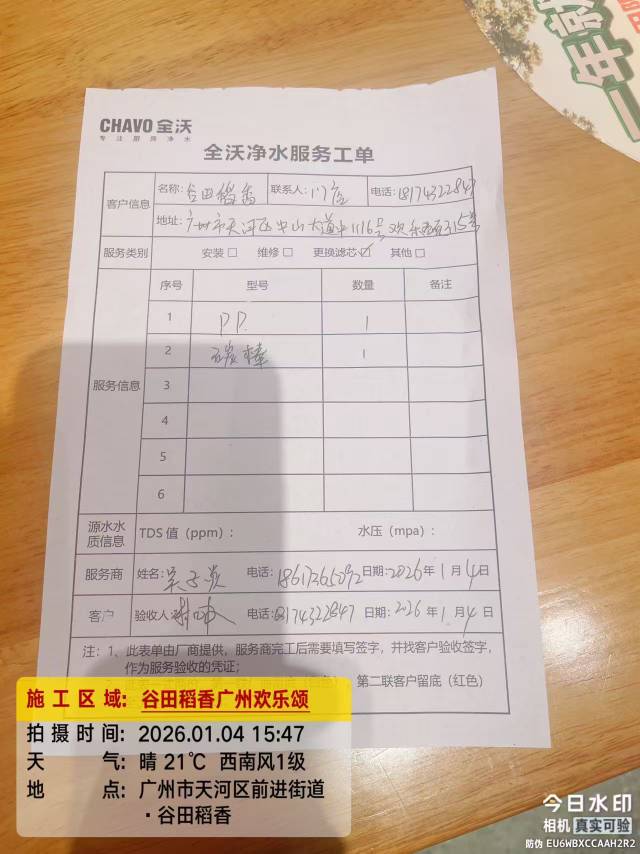 一年就
CHAVO 全沃
专注厨房净水
全沃净水服务工单
客户信息 名称: 谷田稻香 联系人: 门店 电话: 18174322847
地址: 广州市天河区中山大道中1116号欢乐颂315号
服务类别 安装□ 维修□ 更换滤芯☑ 其他□
服务信息 序号 型号 数量 备注
1 PP 1
2 碳棒 1
3
4
5
6
源水水质信息 TDS 值（ppm）: 水压（mpa）:
服务商 姓名: 电话: 18617365092 日期: 2026年1月4日
客户 验收人: 电话: 18174322847 日期: 2026年1月4日
注: 1、此表单由厂商提供，服务商完工后需要填写签字，并找客户验收签字，
作为服务验收的凭证；
第二联客户留底（红色）
施工区域: 谷田稻香广州欢乐颂
拍摄时间: 2026.01.04 15:47
天气: 晴 21℃ 西南风1级
地点: 广州市天河区前进街道
·谷田稻香
今日水印
相机 真实可验
防伪 EU6WBXCCAAH2R2